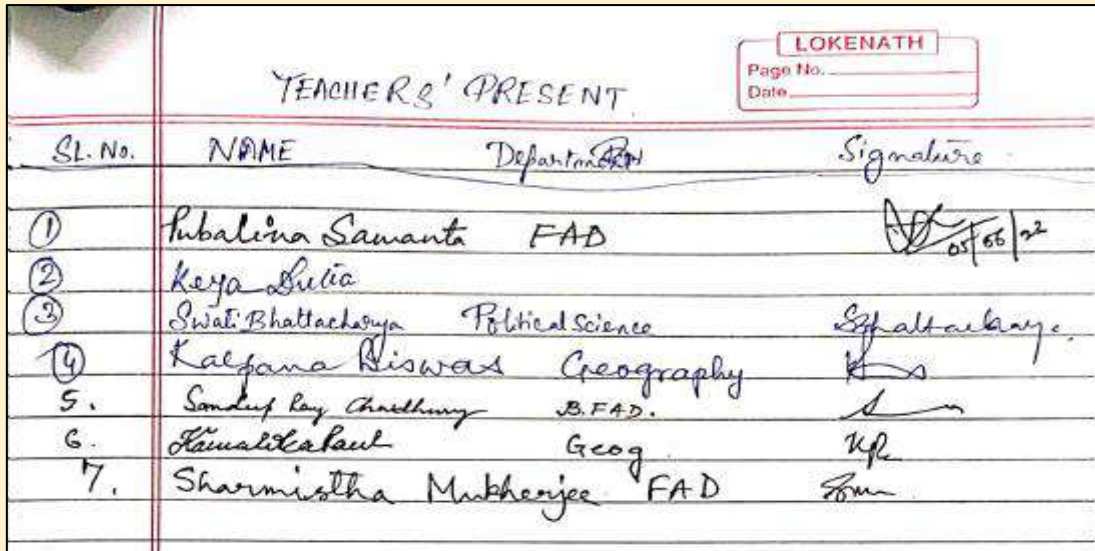 LOKENATH
Page No.
Date
TEACHERS' PRESENT
SL. No. NAME Department Signature
1 Pubalina Samanta FAD 05/06/22
2 Keya
3 Swati Bhattacharya Political Science SBhattacharya.
4 Kalpana Biswas Geography
5. Sandip Ray Chaudhury B.FAD.
6. Kamalika Paul Geog KPL
7. Sharmistha Mukherjee FAD